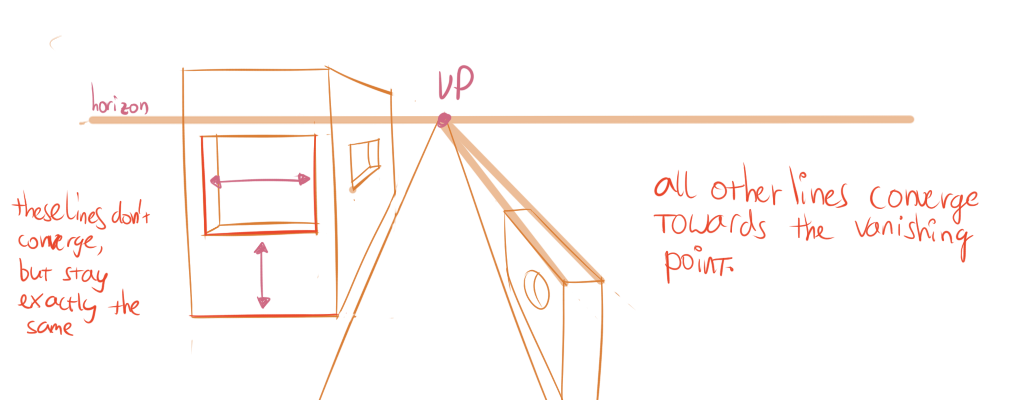 VP
horizon
these lines don't
converge,
but stay
exactly the
same
all other lines converge
TOWARDS the vanishing
point.